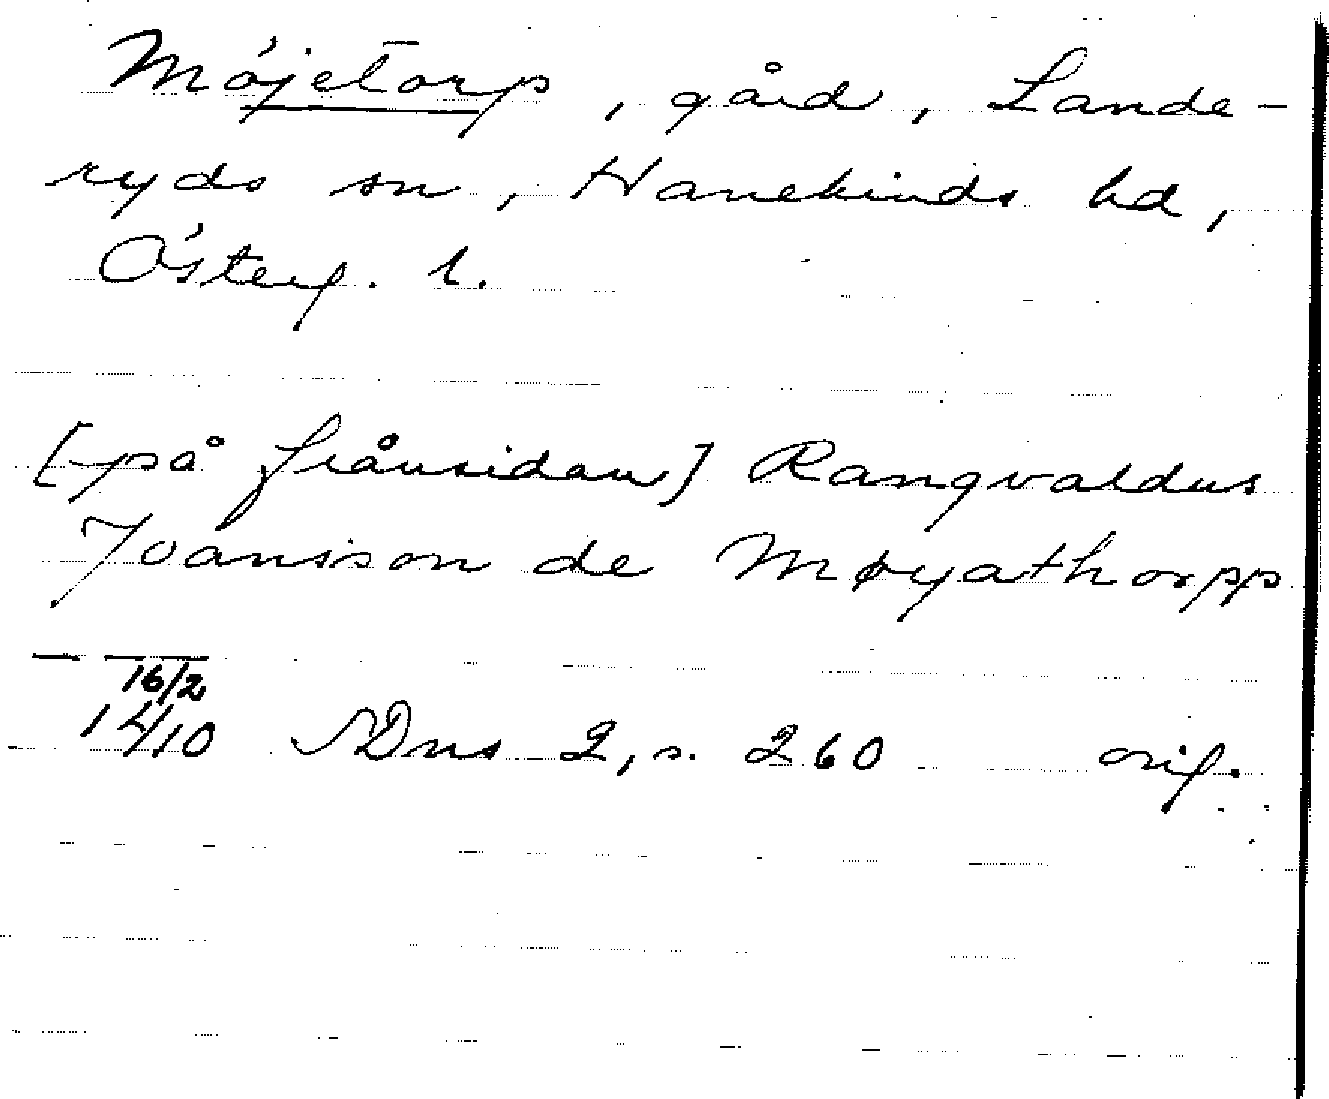 Möjetorp, gård, Lande-
ryds sn, Hanekinds hd,
Österg. l.
[på frånsidan] Rangvaldus
Joansson de Møyathorpp
16/2
1410 SDns 2, s. 260 orig.